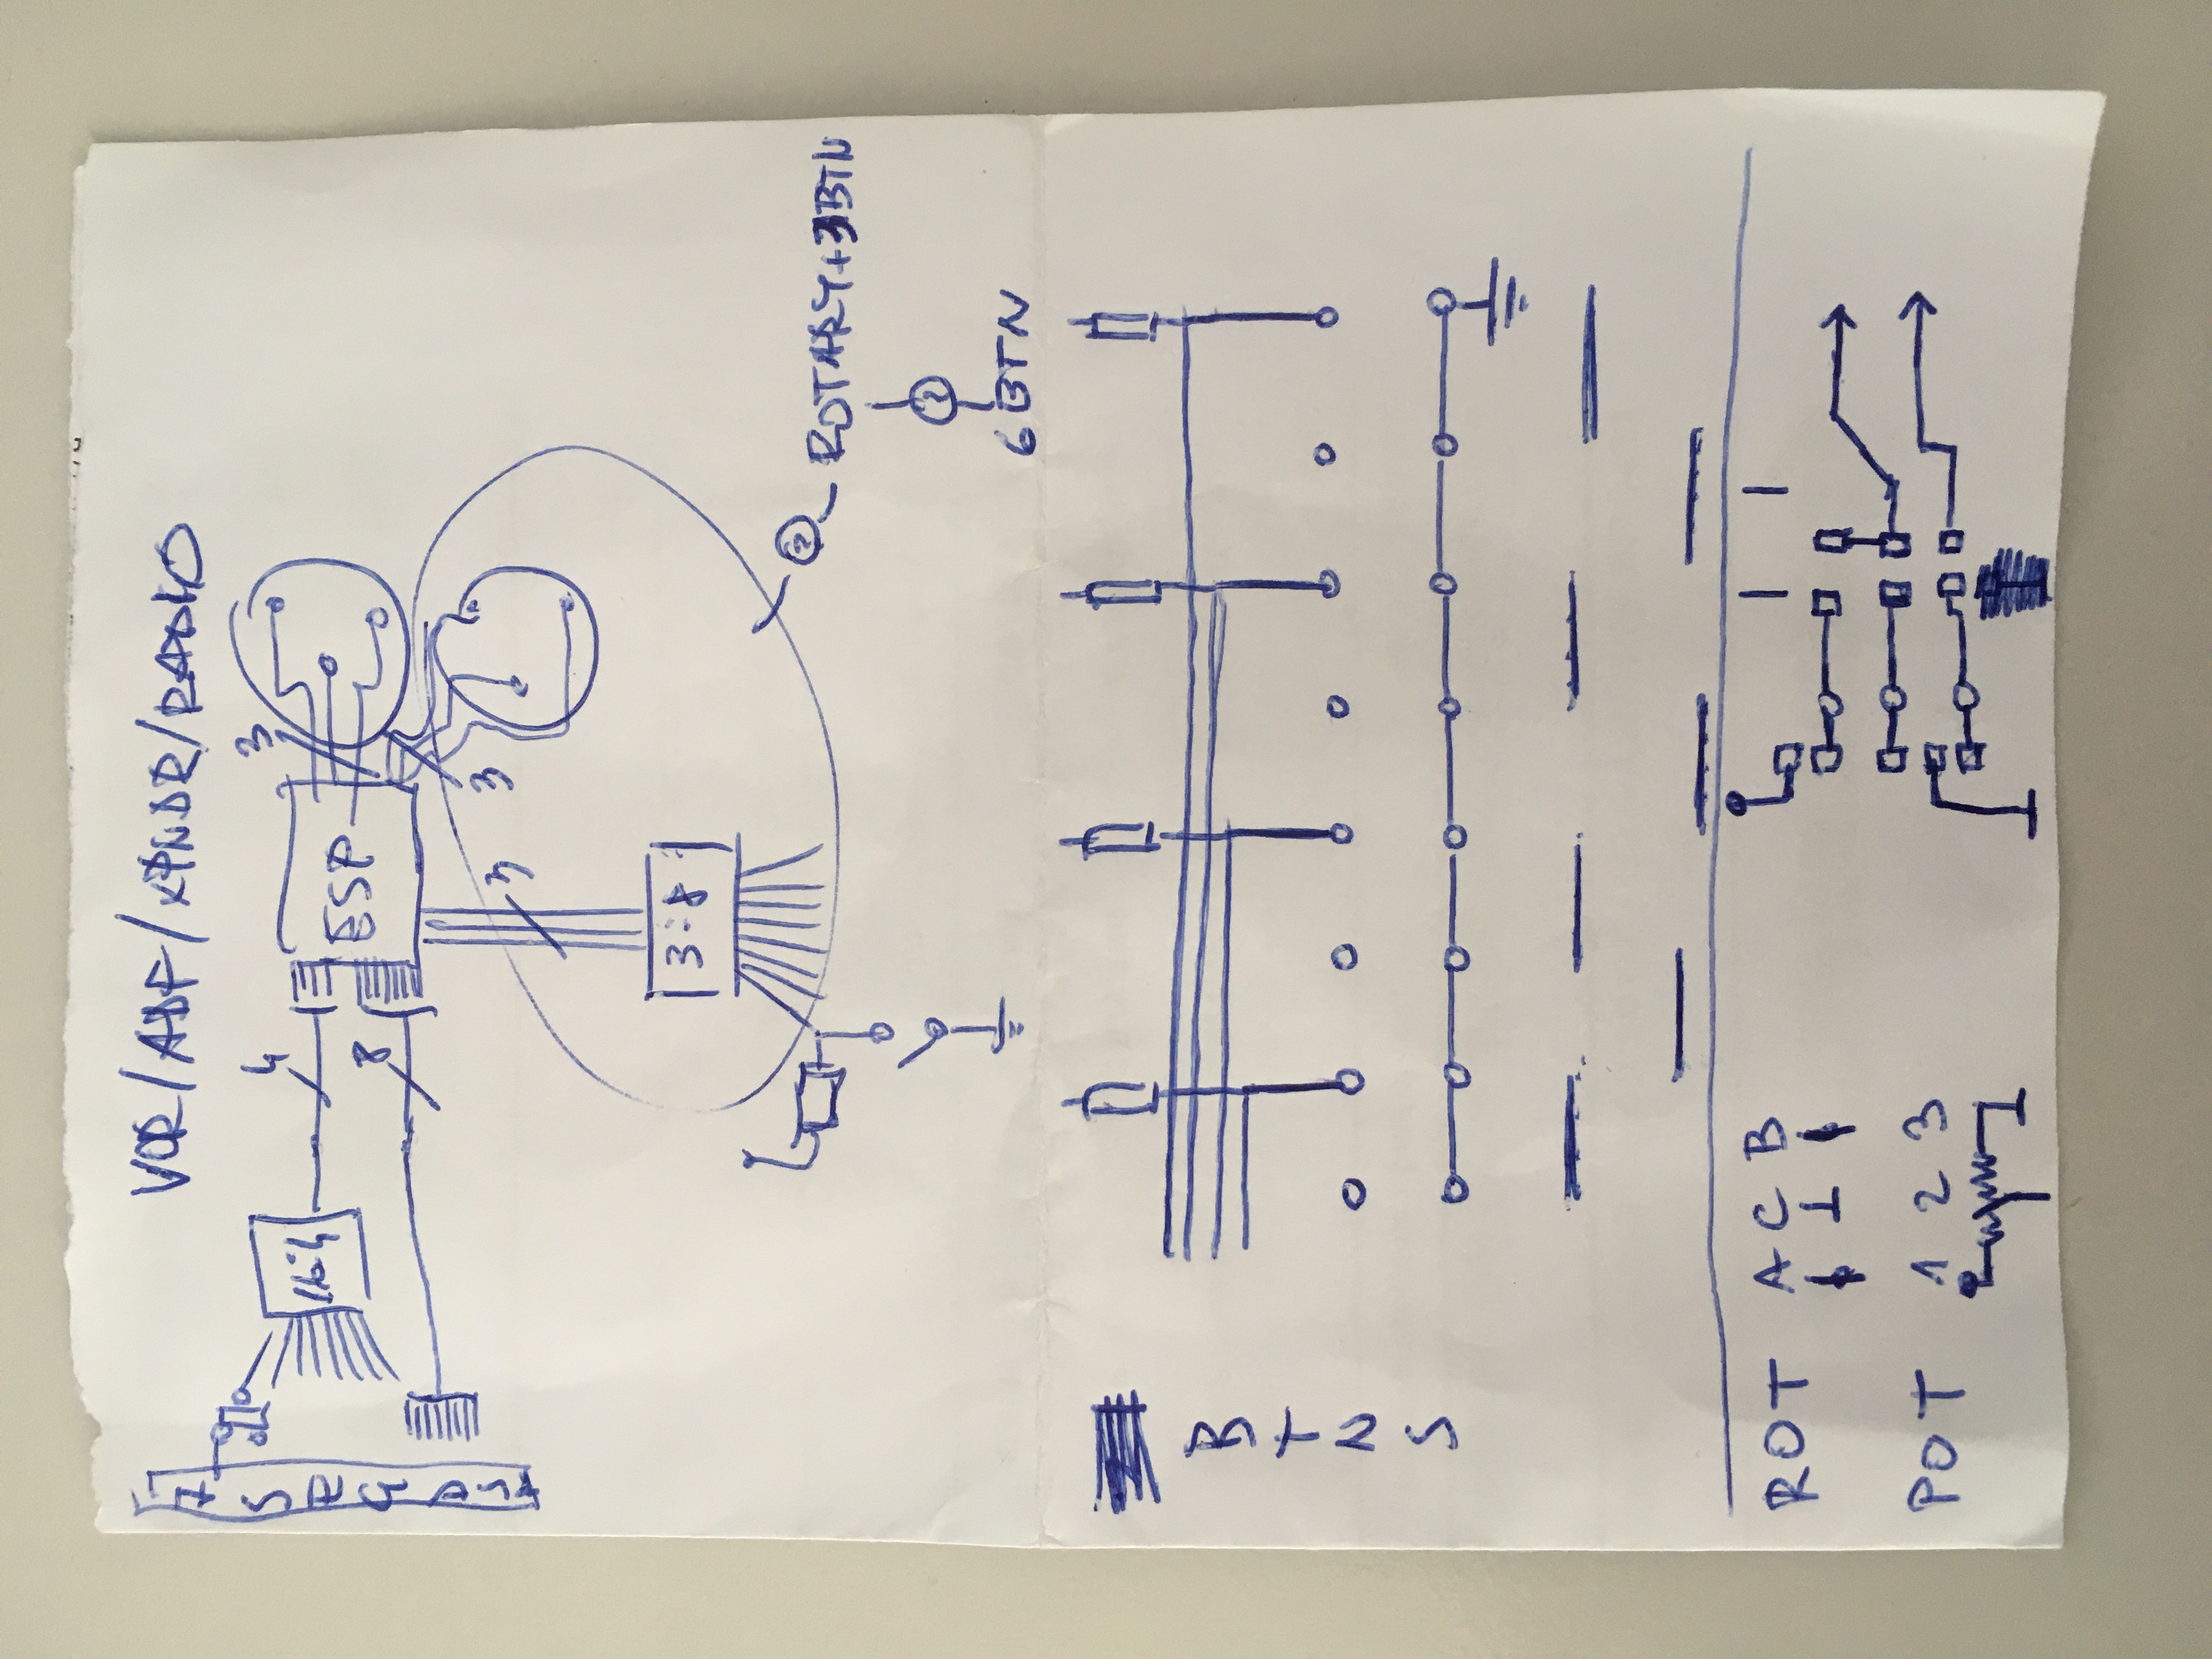 VOR/ADF/XPNDR/RADIO
7
S
E
G
16:4
4
8
ESP
3
3
3
3:8
?
ROTARY+3BTN
?
6BTN
B
T
N
S
ROT A C B
POT 1 2 3